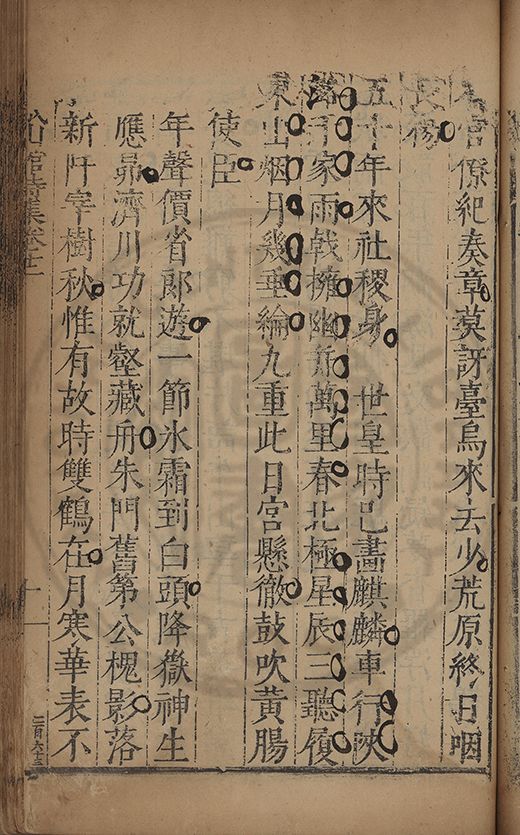 官僚紀奏章莫訝臺烏來去少荒原終日咽
長楊
五十年來社稷身　世皇時已畫麒麟車行陝
洛千家雨戟擁幽并萬里春北極星辰三聽履
東山烟月幾垂綸九重此日宮懸徹鼓吹黃腸
使臣
年聲價省郎遊一節氷霜到白頭降嶽神生
應昴濟川功就壑藏舟朱門舊第公槐影落
新阡宰樹秋惟有故時雙鶴在月寒華表不
山館詩集卷
十一
二百六十三